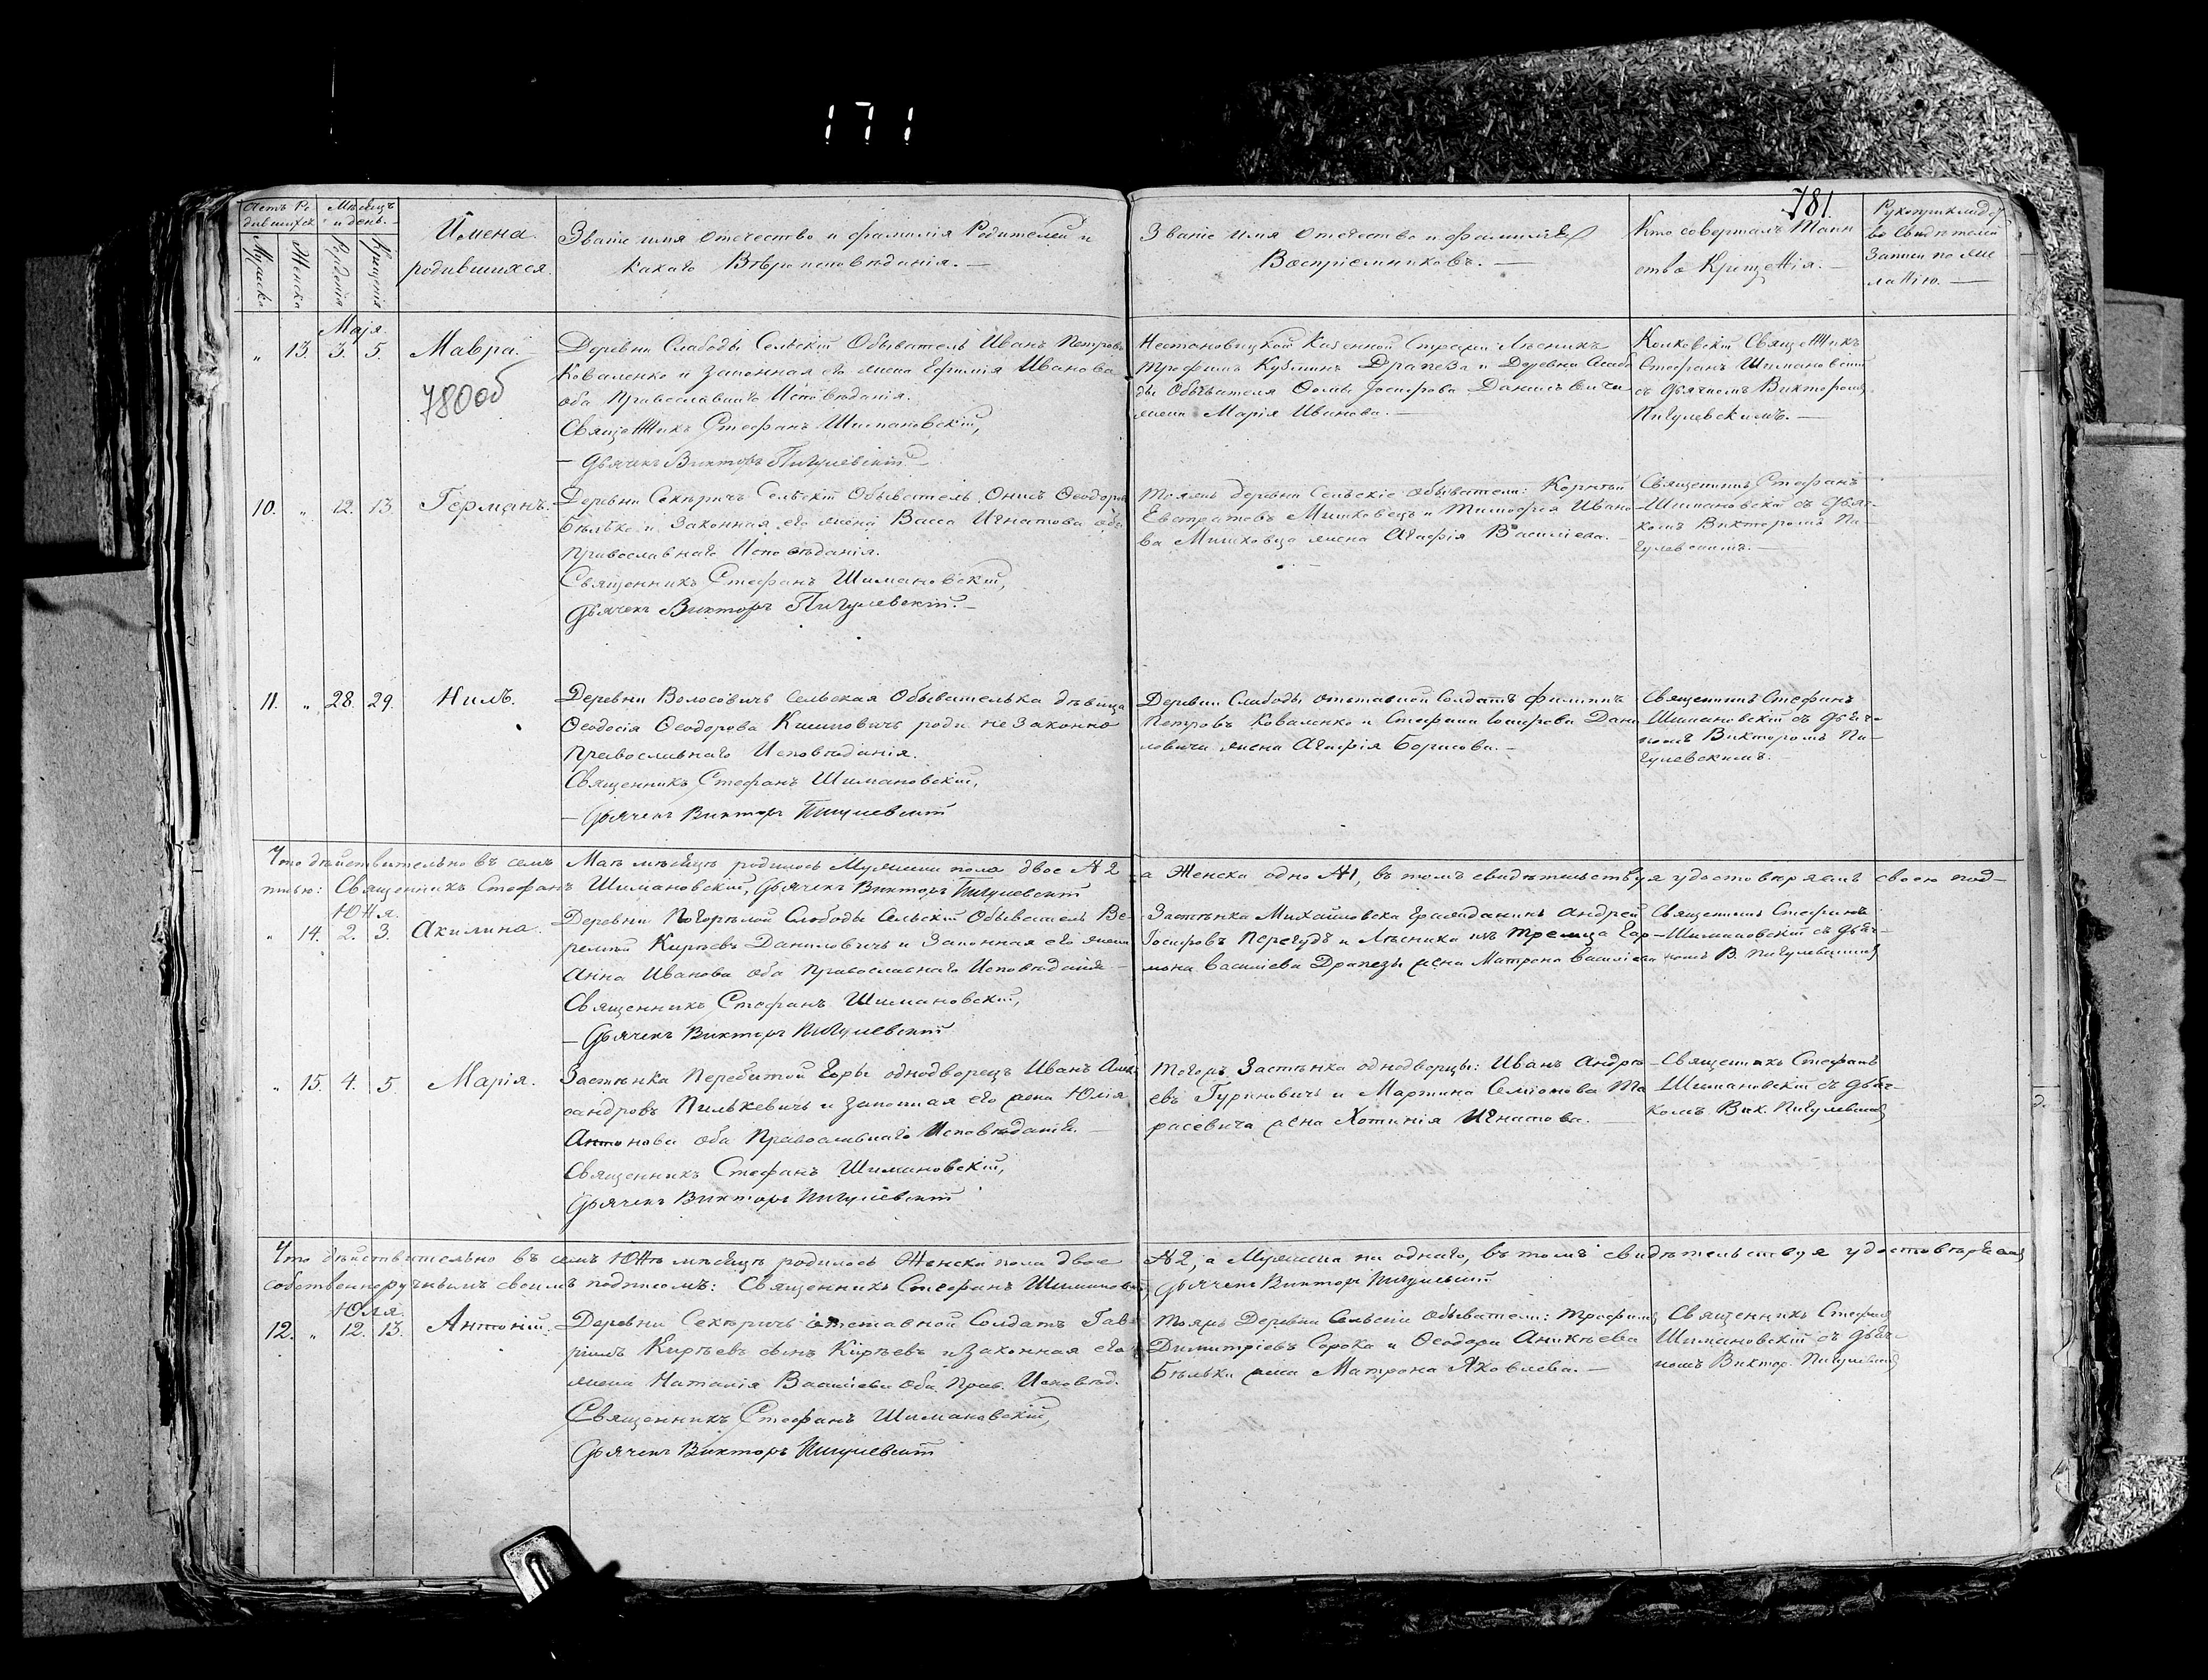 171
781.
Счетъ Ро
дившихся
Мѣсяцъ
и день.
Мужска
Женска
Рожденія
Крещенія
Имена
родившихся.
Званіе имя отечество и фамилія Родителей и
какаго Вѣроисповѣданія. —
Званіе имя отечество и фамилія
Воспріемниковъ. —
Кто совершалъ Таин
ство Крещенія. —
Рукоприклад
во Свидѣтелей
Записи по же
ланію. —
Мая.
„ 13. 3. 5. Мавра.
780об
Деревни Слабоды Сельскій Обыватель Иванъ Петровъ
Коваленко и Законная его жена Ефимія Иванова
оба Православнаго Исповѣданія.
Священникъ Стефанъ Шимановскій,
— Дьячекъ Викторъ Пигулевскій —
Казенной Стражи Лѣсникъ
Трофимъ Драпеза и Деревни Слабо
ды Обывателя Ѳомы Іосифова Даниловича
жена Марія Иванова. —
Священникъ
Стефанъ Шимановскій
съ Дьячкомъ Викторомъ
Пигулевскимъ. —
10. „ 12. 13. Германъ.
Деревни Секѣричъ Сельскій Обыватель Ѳеодоровъ
Бѣлько и Законная его жена Васса Игнатова оба
Православнаго Исповѣданія.
Священникъ Стефанъ Шимановскій,
Дьячекъ Викторъ Пигулевскій. —
Тояжъ деревни Сельскіе обыватели: Корнѣй
Евстратовъ Мишковецъ и Тимофея Ивано
ва Мишковца жена Агафія Василіева. —
Священникъ Стефанъ
Шимановскій съ Дьяч-
комъ Викторомъ Пи-
гулевскимъ. —
11. „ 28. 29. Нилъ.
Деревни Волосовичъ Сельская Обывателька дѣвица
Ѳеодосія Ѳеодорова роди незаконно
Православнаго Исповѣданія.
Священникъ Стефанъ Шимановскій,
— Дьячекъ Викторъ Пигулевскій
Деревни Слабоды отставной Солдатъ Филиппъ
Петровъ Коваленко и Стефана Іосифова Дани
ловича жена Агафія Борисова. —
Священникъ Стефанъ
Шимановскій съ Дьяч-
комъ Викторомъ Пи-
гулевскимъ. —
Что дѣйствительно въ семъ Маѣ мѣсяцѣ родилось Мужеска пола двое №2 а Женска одно №1, въ томъ свидѣтельствуя удостовѣряемъ своею под-
писью: Священникъ Стефанъ Шимановскій, Дьячекъ Викторъ Пигулевскій
Юня.
„ 14. 2. 3. Акилина.
Деревни Погорѣлой Слободы Сельскій Обыватель Ве-
ремѣй Кирѣевъ Даниловичъ и Законная его жена
Анна Иванова оба Православнаго Исповѣданія —
Священникъ Стефанъ Шимановскій,
— Дьячекъ Викторъ Пигулевскій
Застѣнка Михайловска гражданинъ Андрей
Іосифовъ Перегудъ и Лѣсника изъ Тремца Гар-
мона Василіева Драпезы жена Матрона Василіева
Священникъ Стефанъ
Шимановскій съ Дьяч-
комъ В. Пигулевскимъ
„ 15. 4. 5. Марія.
Застѣнка Перебитой Горы однодворецъ Иванъ Алек
сандровъ Пилькевичъ и Законная его жена Юлія
Антонова оба Православнаго Исповѣданія. —
Священникъ Стефанъ Шимановскій,
Дьячекъ Викторъ Пигулевскій
Тогожъ Застѣнка однодворцы: Иванъ Андре
евъ Гуриновичъ и Мартина Семіонова Та
расевича жена Хотинія Игнатова. —
Священникъ Стефанъ
Шимановскій съ Дьяч-
комъ Вик. Пигулевским
Что дѣйствительно въ семъ Юнѣ мѣсяцѣ родилось Женска пола двое №2, а Мужеска ни однаго, въ томъ свидѣтельствуя удостовѣряемъ
собственноручнымъ своимъ подписомъ: Священникъ Стефанъ Шимановскій, Дьячекъ Викторъ Пигулевскій
Юля.
12. „ 12. 13. Антоній.
Деревни Секѣричъ отставной Солдатъ Гав
ріилъ Кирѣевъ сынъ Кирѣевъ и Законная его
жена Наталія Василіева оба Прав. Исповѣд.
Священникъ Стефанъ Шимановскій,
Дьячекъ Викторъ Пигулевскій
Тояжъ Деревни Сельскіе обыватели: Трофимъ
Димитріевъ Сорока и Ѳеодора Аникѣева
Бѣлька жена Матрона Яковлева. —
Священникъ Стефанъ
Шимановскій съ Дьяч-
комъ Виктор. Пигулевским